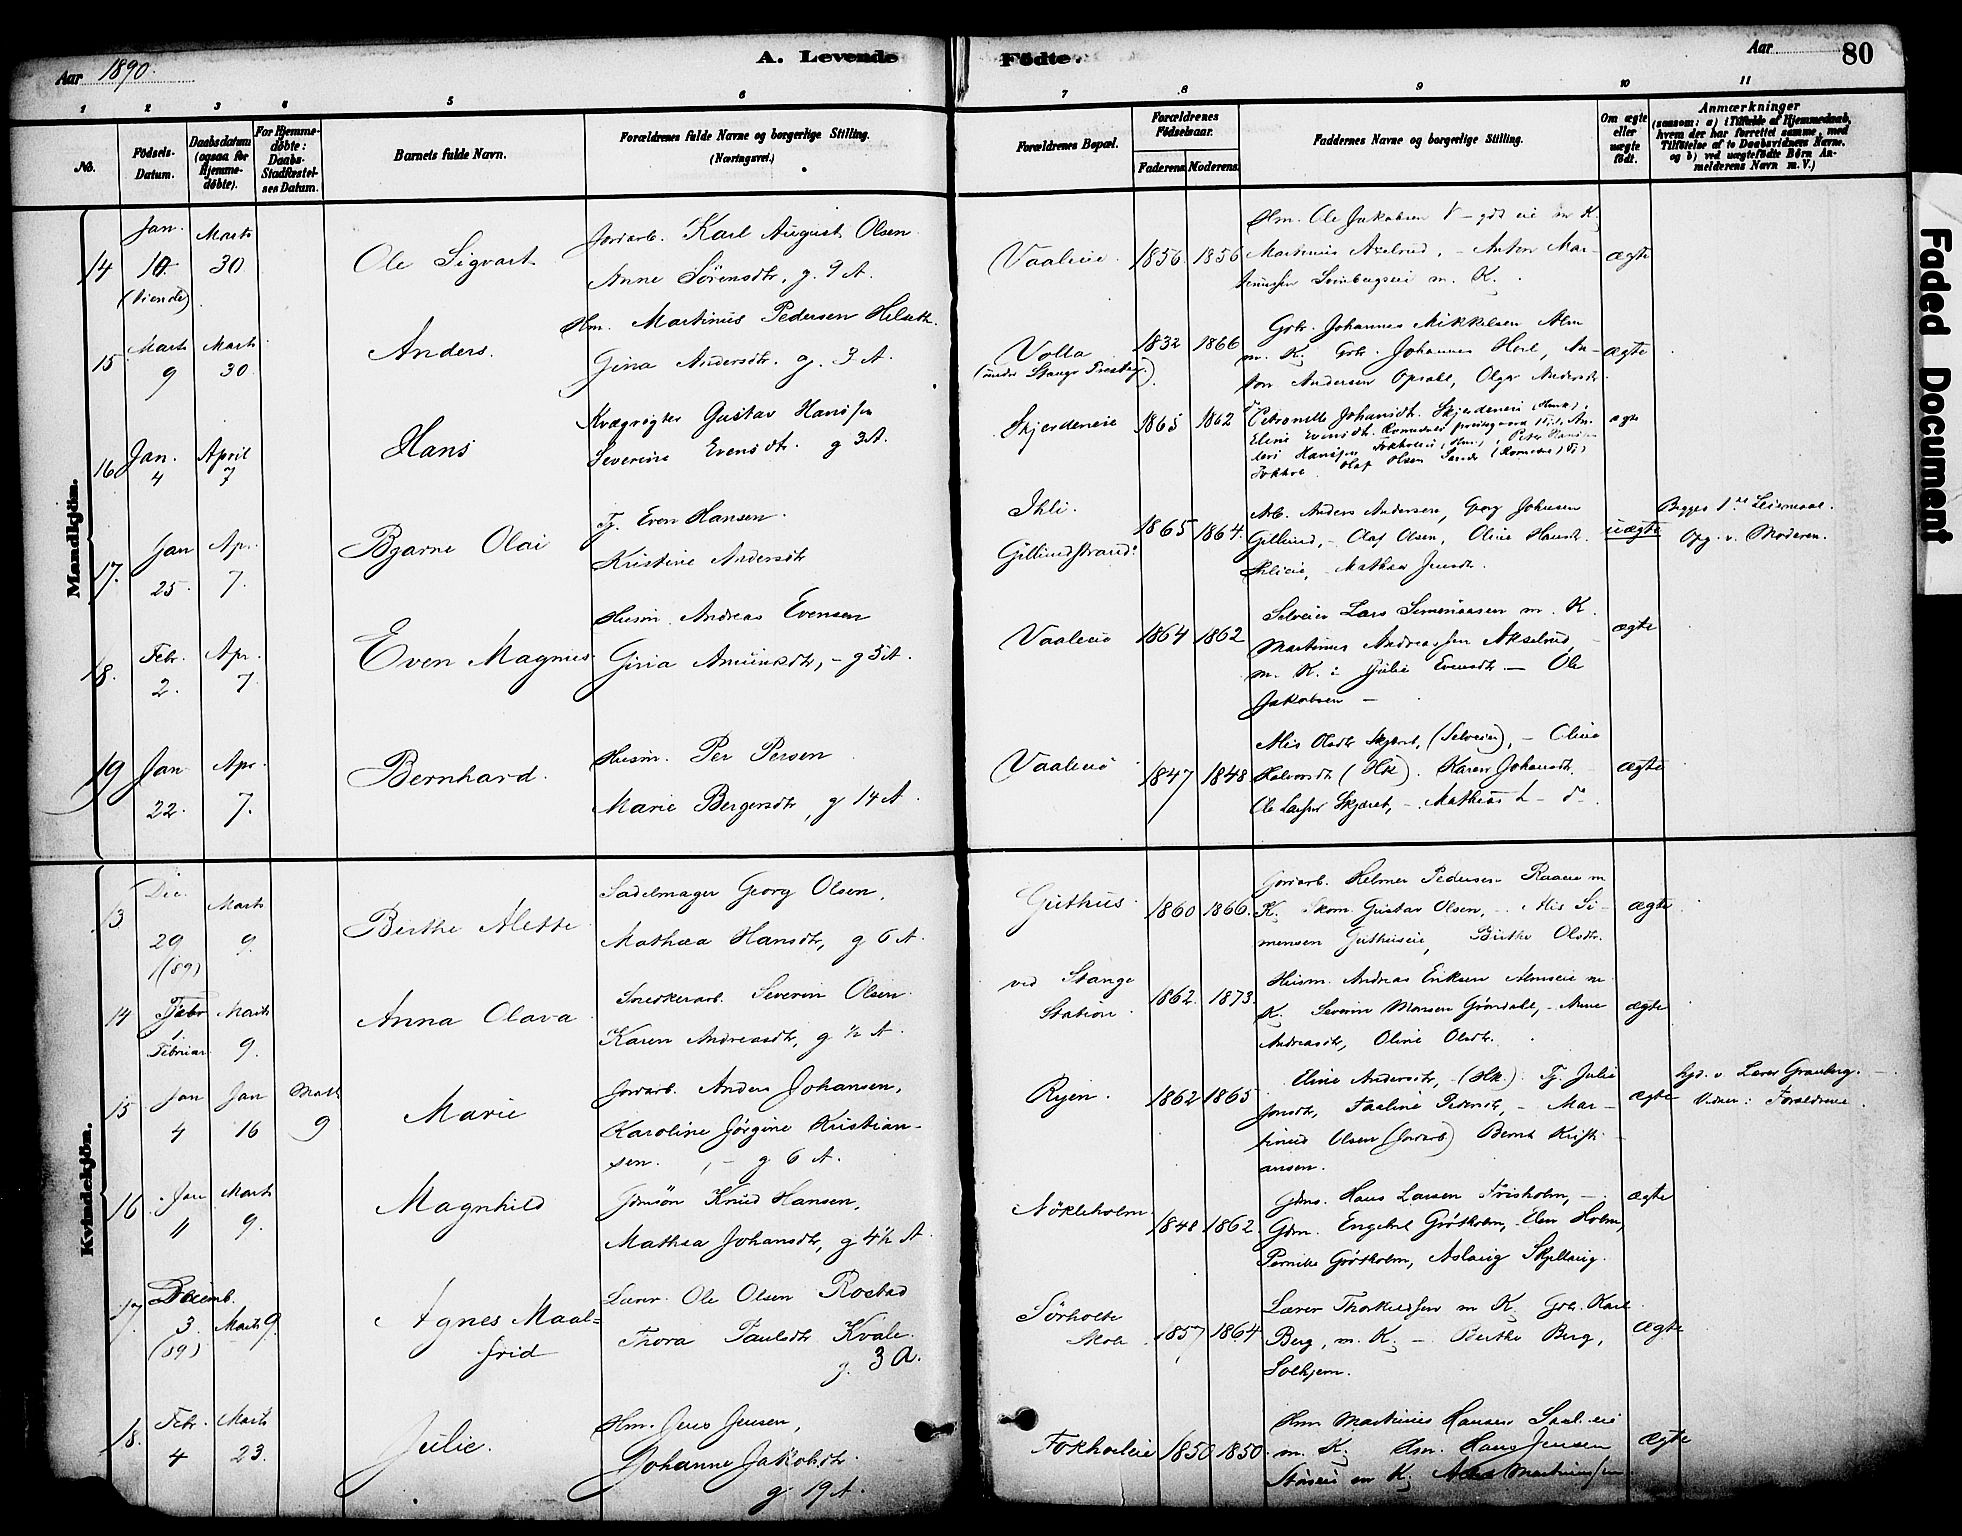 Aar 1890.
A. Levende
Födte.
Aar
80
1 2 3 6 5 6 7 8 9 10 11
No.
Födsels-Datum.
Daabsdatum (ogsaa for Hjemmedöbte).
For Hjemmedöbte: Daabs-Stadfæstelses Datum.
Barnets fulde Navn.
Forældrenes fulde Navne og borgerlige Stilling. (Næringsvei.)
Forældrenes Bopæl.
Forældrenes Födselsaar.
Faderens. Moderens.
Faddernes Navne og borgerlige Stilling.
Om ægte eller uægte födt.
Anmærkninger
(saasom: a) i Tilfælde af Hjemmedaab, hvem der har forrettet samme, med Tilföielse af to Daabsvidners Navne. og b) ved uægtefödte Börn Anmelderens Navn m. V.)
Faded Document
Mandkjön.
14
Jan. 10
Marts 30
Ole Sigvart
Jordarb. Karl August Olsen
Anne Sörensdtr, g. 9 A.
Vaaleie
1856 1856
Hm. Ole Jakobsen V - gds eie m K.
Martinus Axelrud, - Anton Mar-
m. K.
ægte
15
Marts 9
Marts 30.
Anders.
Hm. Martinus Pedersen Helseth.
Gina Andersdtr. g. 3 A.
Volla
(under Stange Prestegd.)
1832 1866
Gbr. Johannes Mikkelsen Alm
m. K. Gbr. Johannes Horl, An-
ton Andersen Opsahl, Olga Andersdtr.
ægte
16
Jan. 4
April 7
Hans
Kvægrögter Gustav Hansen
Severine Evensdtr. g 3 A.
Skjerdeneie
1865 1862
Petronelle Johansdtr. Skjerdeneie
Eline Evensdtr.
Olaf Olsen
ægte
17.
Jan 25.
Apr. 7.
Bjarne Olai
Tj. Even Hansen.
Kristine Andersdtr
Ihli.
Gillundstrand.
1865 1864.
Arb. Anders Andersen, Georg Johnsen
Gillund, - Olaf Olsen, Oline Hansdtr.
Ihlieie, - Mathea Jensdtr.
uægte
Begges 1ste Leiermaal.
Opg. v. Moderen.
18.
Febr. 2.
Apr. 7
Even Magnus
Husm. Andreas Evensen
Gina Amundsdtr, - g 5 A.
Vaaleie
1864 1862
Selveier Lars Simensen m. K.
Martinus Andreassen Akselrud,
m. K. : Julie Evensdtr - Ole
Jakobsen -
ægte
19
Jan 22.
Apr. 7.
Bernhard.
Husm. Per Persen
Marie Bergersdtr, g 14 A.
Vaaleie
1847 1848
Olsdtr Skjæret, (Selveier), - Oline
Halvorsdtr (Hk). Karen Johansdtr.
Ole Larsen Skjæret, - Mathias L - do
ægte
Kvindekjön.
13
Dec. 29 (89)
Marts 9.
Birthe Alette
Sadelmager Georg Olsen,
Mathea Hansdtr, g 6 A.
Guthus
1860 1866.
Jordarb. Helmer Pedersen Raaeie m
K. Skom. Gustav Olsen, - Si-
mensen Guthuseie, Birthe Olsdtr.
ægte
14
Febr 1 Februar
Marts 9.
Anna Olava
Snedkerarb. Severin Olsen
Karen Andreasdtr, g ½ A.
ved Stange
Station
1862. 1873.
Husm. Andreas Eriksen Almseie m
K. Severin Monsen Gröndahl, - Anne
Andreasdtr, Oline Olsdtr.
ægte
15
Jan 4
Jan 16
Marts 9
Marie
Jordarb. Anders Johansen,
Karoline Jörgine Kristian-
sen. - g 6 A.
Ryen.
1862 1865
Eline Andersdtr, - (Hk.). Tj. Julie
Jonsdtr, Pedersdtr, - Mar-
tinus Olsen (Jordarb) Bernt Kristi-
ansen.
ægte
hjd. v. Lærer Granberg.
Vidner: Forældrene
16
Jan 11
Marts 9.
Magnhild
Gdmsön Knud Hansen,
Mathea Johansdtr, g 4½ A.
Nökleholm
1848 1862.
Gdms. Hans Larsen Frisholm, -
Gdm. Engebret Grötholm, - Elen Holm,
Pernille Grötholm, Aslaug Skjellaug.
ægte
17
Decemb. 3. (89)
Marts 9.
Agnes Maal-
frid
Lærer. Ole Olsen Rostad
Thora Paulsdtr Kvale.
g. 3 A.
Sörholte
Skole
1857 1864
Lærer Thorkildsen m K. Gbr. Karl
Berg, m. K. - Birthe Berg,
Solhjem.
ægte
18.
Febr. 4
Marts 23.
Julie.
Hm. Jens Jensen,
Johanne Jakobsdtr.
g 19 A.
Fokholeie
1850 1850.
Hm Martinus Hansen
m. K. Hm. Hans Jensen
m K.
ægte